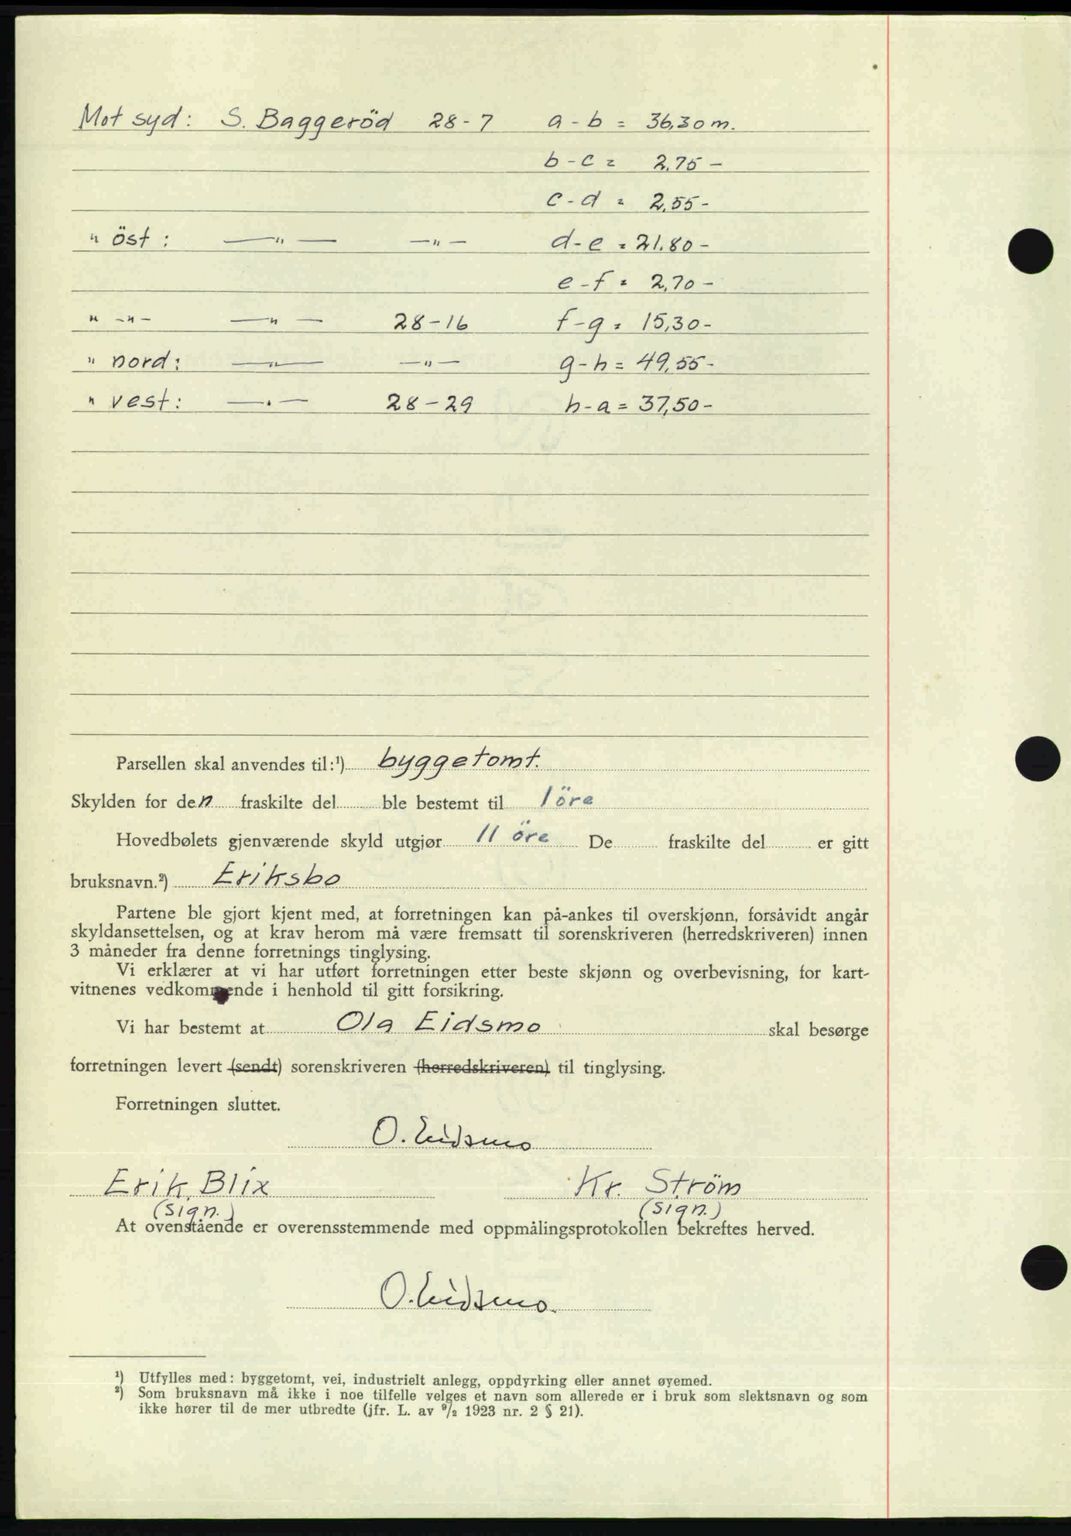 Mot syd: S. Baggeröd 28-7 a-b = 36,30 m.
b-c = 2,75 -
c-d = 2,55 -
" öst : —"— —"— d-e = 21.80 -
e-f = 2,70 -
" -"- —"— 28-16 f-g = 15,30 -
" nord: —"— —"— g-h = 49,55 -
" vest: —"— 28-29 h-a = 37,50 -
Parsellen skal anvendes til:¹) byggetomt.
Skylden for den fraskilte del ble bestemt til 1 öre
Hovedbølets gjenværende skyld utgjør 11 öre De fraskilte del er gitt
bruksnavn.²) Eriksbo
Partene ble gjort kjent med, at forretningen kan på-ankes til overskjønn, forsåvidt angår
skyldansettelsen, og at krav herom må være fremsatt til sorenskriveren (herredskriveren) innen
3 måneder fra denne forretnings tinglysing.
Vi erklærer at vi har utført forretningen etter beste skjønn og overbevisning, for kart-
vitnenes vedkommende i henhold til gitt forsikring.
Vi har bestemt at Ola Eidsmo skal besørge
forretningen levert (sendt) sorenskriveren (herredskriveren) til tinglysing.
Forretningen sluttet.
O. Eidsmo
Erik Blix Kr. Ström
(sign.) (sign.)
At ovenstående er overensstemmende med oppmålingsprotokollen bekreftes herved.
O. Eidsmo.
¹) Utfylles med: byggetomt, vei, industrielt anlegg, oppdyrking eller annet øyemed.
²) Som bruksnavn må ikke i noe tilfelle velges et navn som allerede er i bruk som slektsnavn og som
ikke hører til de mer utbredte (jfr. L. av 9/2 1923 nr. 2 § 21).